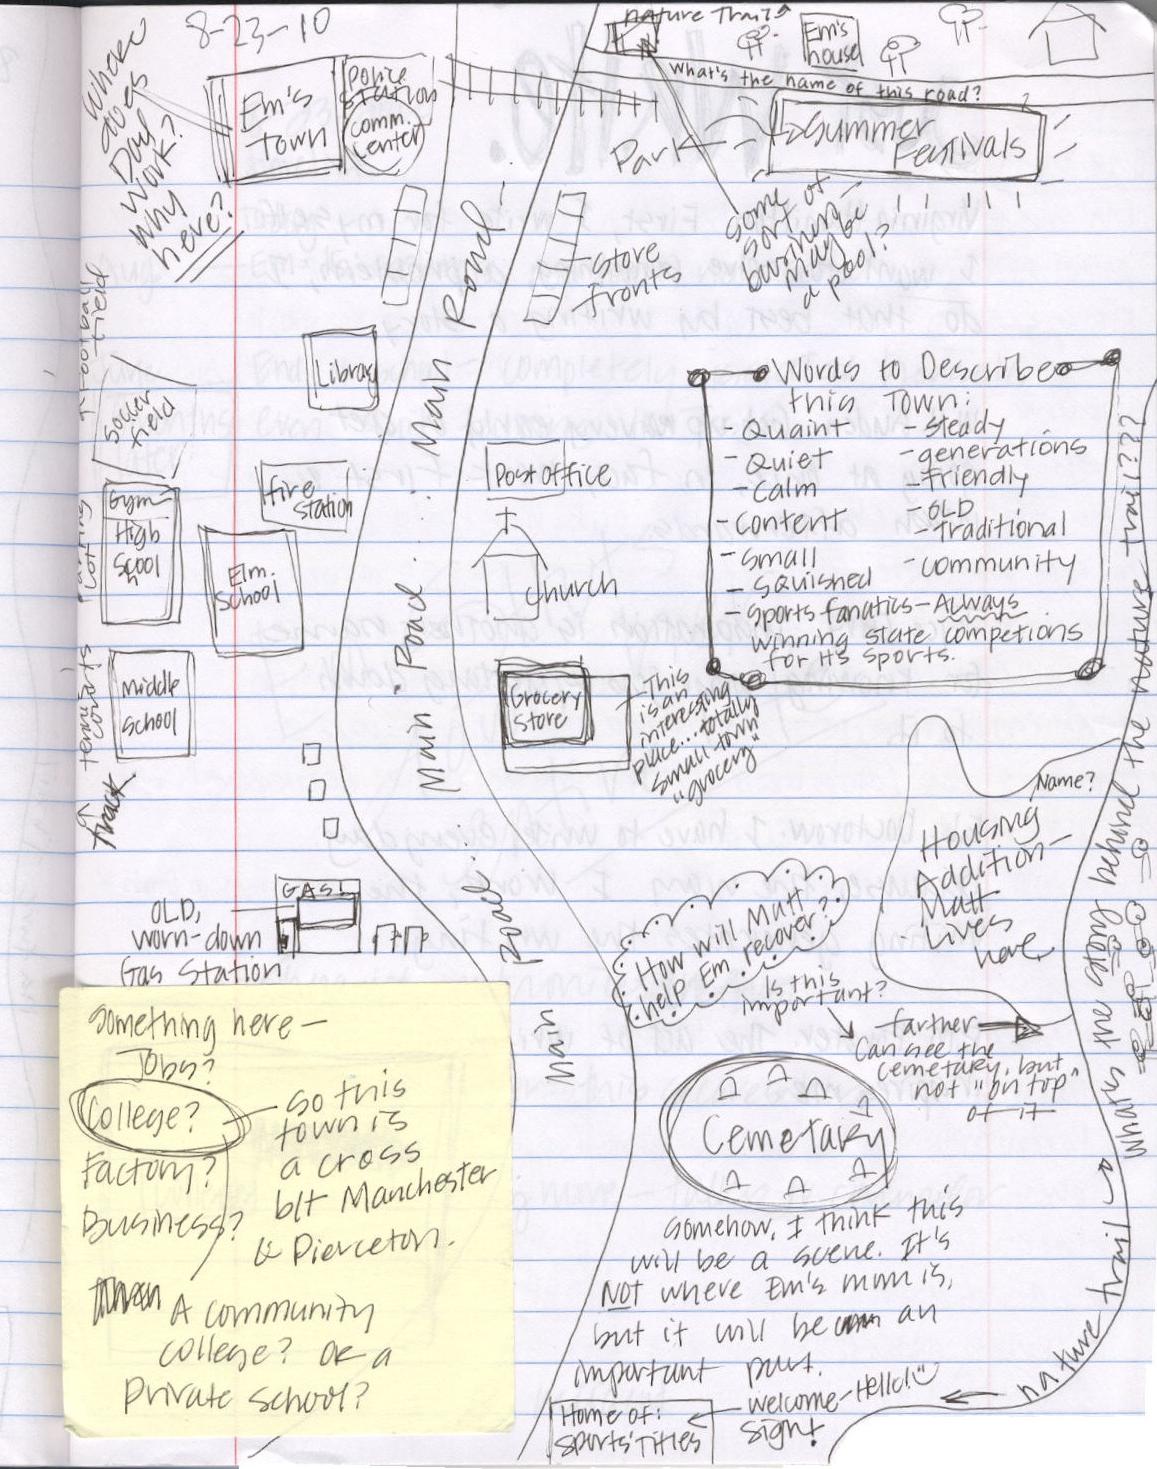 8-23-10
Where
does
Dad
work?
Why
here?
Em's
Town
Police
Station
comm.
Center
nature Trails
Em's
house
What's the name of this road?
Park
Summer
Festivals
some
sort of
business-
maybe
a pool?
store
fronts
Main Road... Main Road... Main Road... Main Road
Football
field
Soccer
field
Library
fire
station
Post office
Church
Gym
High
Scool
h
Parking
Lot
Elm.
School
Middle
School
tennis
courts
Track
Grocery
Store
-This
is an
interesting
place...totally
"small town"
"grocery"
Words to Describe
this Town:
- Quaint
- Quiet
- Calm
- Content
- Small
- Squished
- Sports fanatics - ALWAYS
winning state competions
for H.S sports.
- Steady
- generations
- friendly
- OLD
- Traditional
- community
Name?
Housing
Addition-
Matt
Lives
here
What's in/out behind the nature trail????
GAS!
OLD,
worn-down
Gas Station
How will Matt
help Em recover?
Is this
important?
-farther
Can see the
cemetary, but
not "on top"
of it
Cemetary
Somehow, I think this
will be a scene. It's
NOT where Em's mom is,
but it will be an
important part.
welcome-Hello!
sign!
Home of:
Sports Titles
nature trail
Something here-
Jobs?
College?
Factory?
Business?
-So this
town is
a cross
b/t Manchester
& Pierceton.
A community
college? or a
Private school?